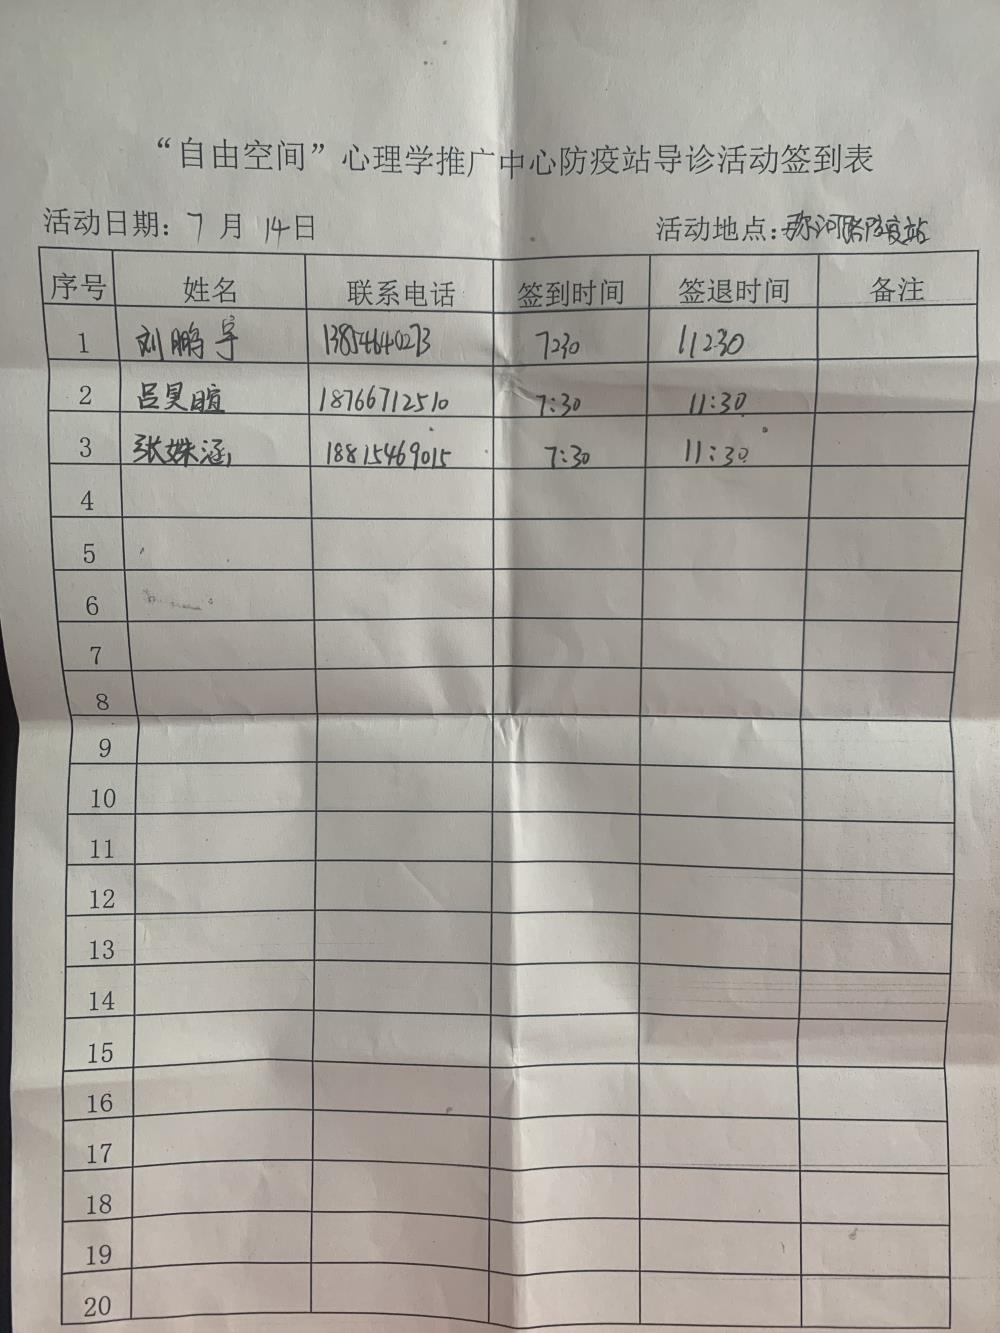 “自由空间”心理学推广中心防疫站导诊活动签到表
活动日期：7月14日 活动地点：弥河路防疫站
序号 姓名 联系电话 签到时间 签退时间 备注
1 刘鹏宇 13854640273 7:30 11:30
2 吕昊暄 18766712510 7:30 11:30
3 张姝涵 18815469015 7:30 11:30
4
5
6
7
8
9
10
11
12
13
14
15
16
17
18
19
20